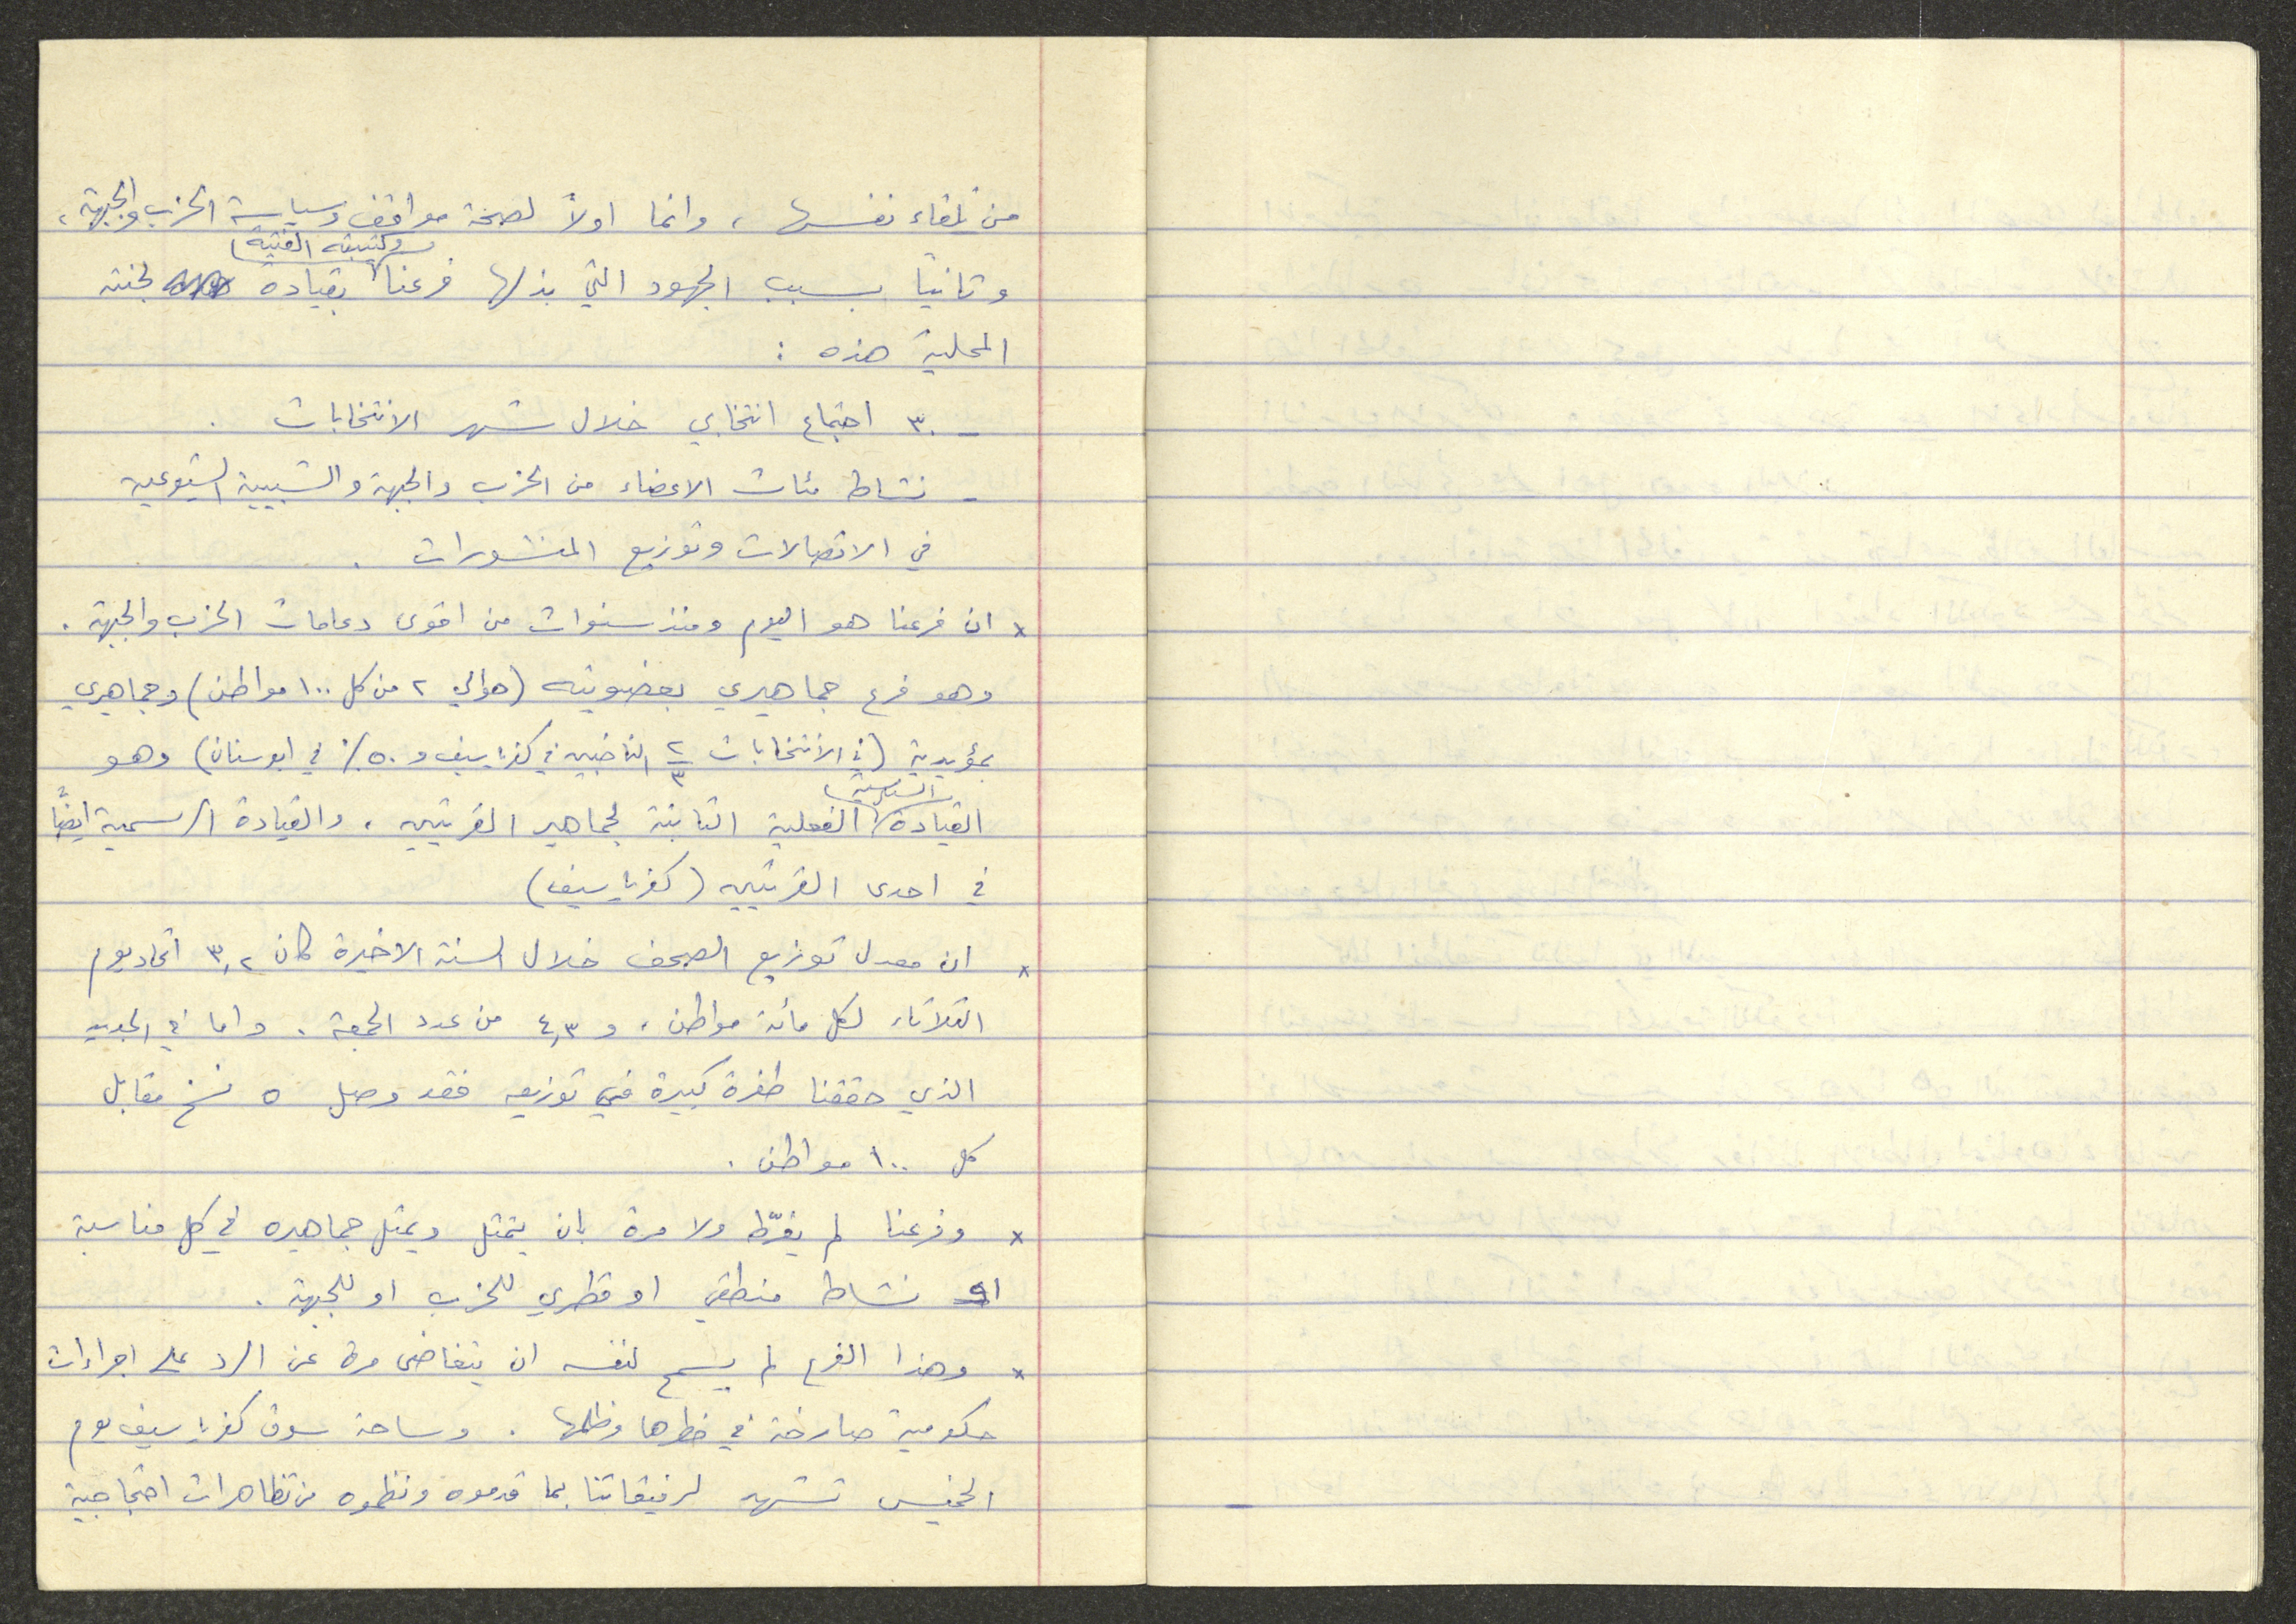 من تلقاء نفسها ، وانما اولاً لصحة مواقف وسياسة الحزب والجبهة ،
وشبيبته الفتية
وثانياً بسبب الجهود التي بذلها فرعنا بقيادة لجنته
المحلية هذه :
- ٣٠ اجتماع انتخابي خلال شهر الانتخابات .
- نشاط مئات الاعضاء من الحزب والجبهة والشبيبة الشيوعية
في الاتصالات وتوزيع المنشورات .
× ان فرعنا هو اليوم ومنذ سنوات من اقوى دعامات الحزب والجبهة .
وهو فرع جماهيري بعضويته (حوالي ٢ من كل ١٠٠ مواطن) وجماهيري
بمؤيديه (في الانتخابات ٢/٣ الناخبين في كفرياسيف و ٥٠٪ في ابوسنان) وهو
السياسية
القيادة الفعلية الثابتة لجماهير القريتين ، والقيادة الرسمية ايضاً
في احدى القريتين (كفرياسيف)
× ان معدل توزيع الصحف خلال السنة الاخيرة كان ٣,٢ اتحاد يوم
الثلاثاء لكل مائة مواطن ، و ٤,٣ من عدد الجمعة . واما في الجديد
الذي حققنا طفرة كبيرة في توزيعه فقد وصل ٥ نسخ مقابل
كل ١٠٠ مواطن .
× وفرعنا لم يفرّط ولا مرة بان يتمثل ويمثل جماهيره في كل مناسبة
او نشاط منطقي او قطري للحزب او للجبهة .
× وهذا الفرع لم يسمح لنفسه ان يتغاضى مرة عن الرد على اجراءات
حكومية صارخة في خطرها وظلمها . وساحة سوق كفرياسيف يوم
الخميس تشهد لرفيقاتنا بما قدموه ونظموه من تظاهرات احتجاجية